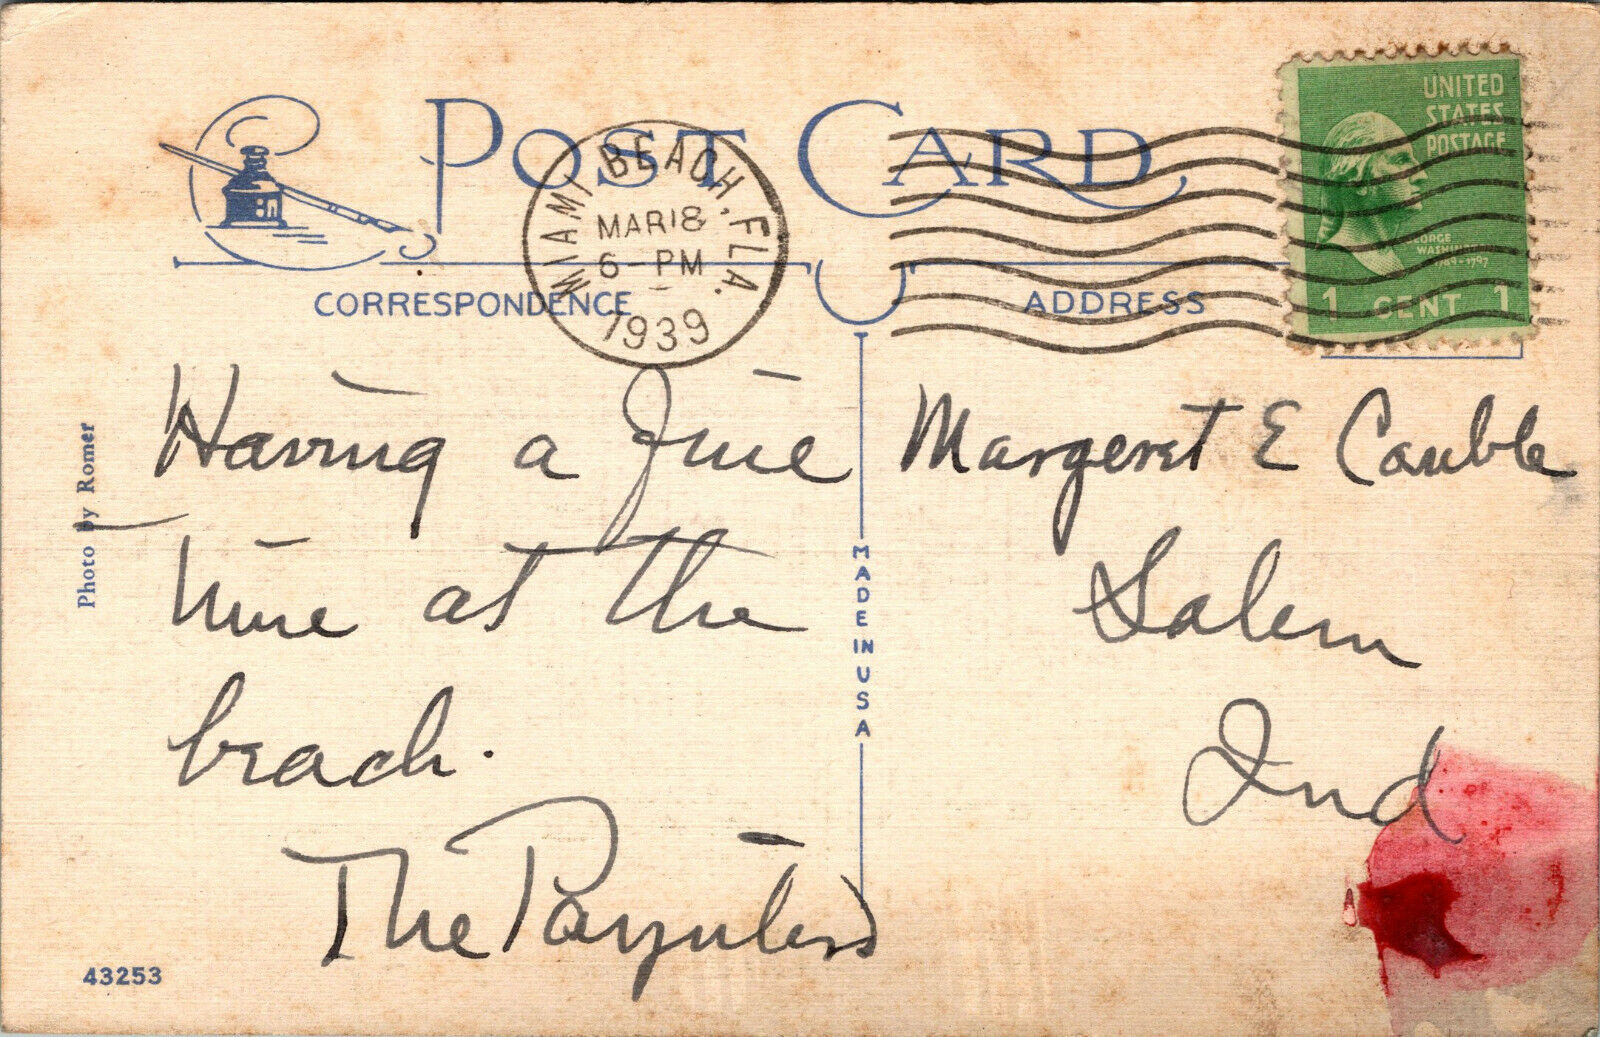 POST CARD
MIAMI BEACH, FLA.
MAR 18
6-PM
1939
UNITED
STATES
POSTAGE
GEORGE
WASHINGTON
1789-1797
1 CENT 1
CORRESPONDENCE
ADDRESS
Having a fine
time at the
beach.
The Paynters
Margeret E Cauble
Salem
Ind
Photo by Romer
MADE IN USA
43253